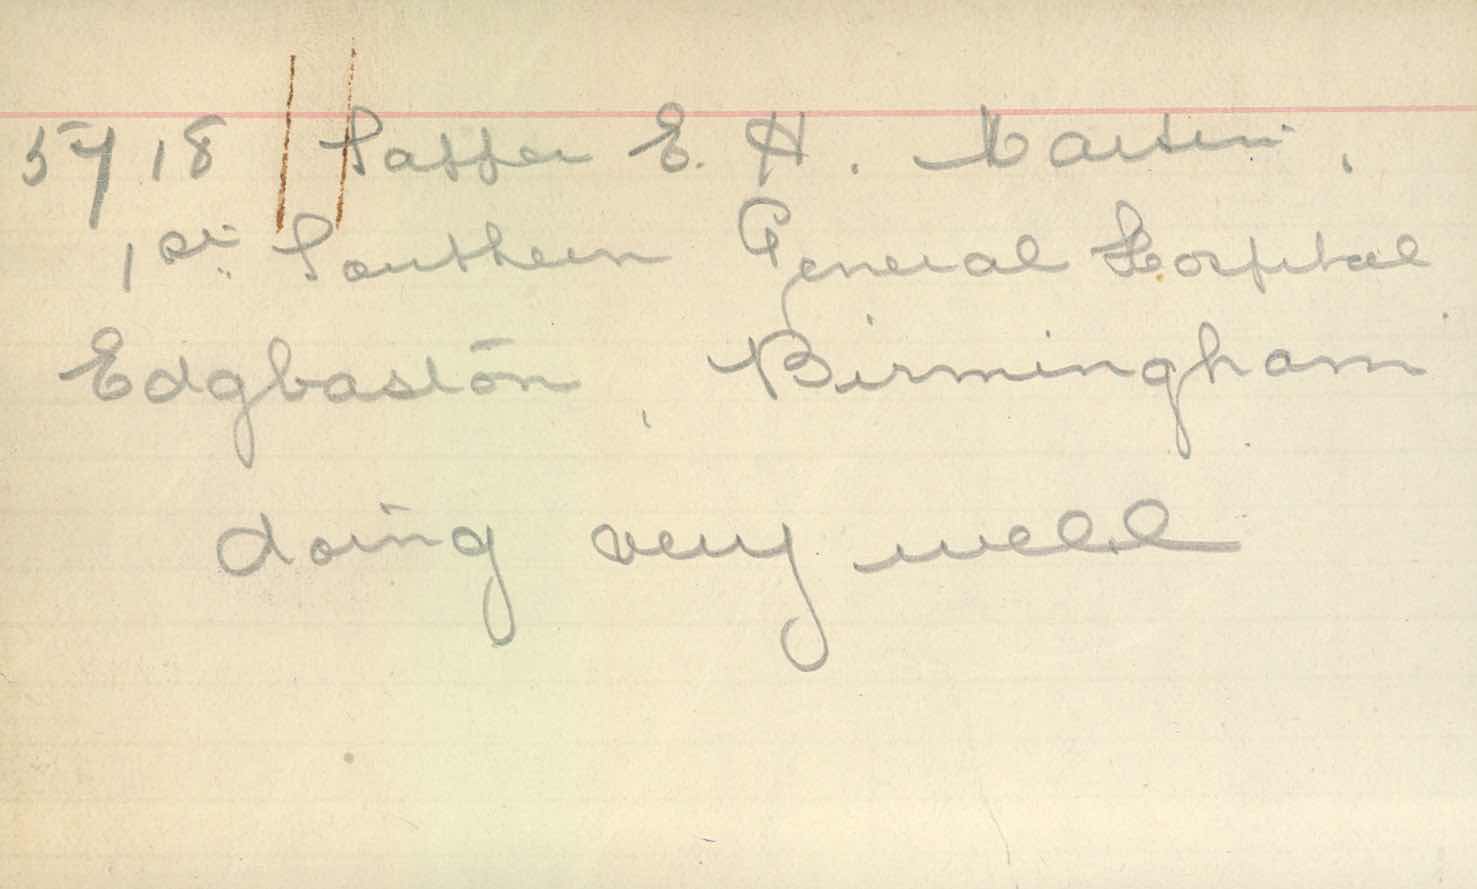 5718 Sapper E. H. Martin.
1st Southern General Hospital
Edgbaston, Birmingham
doing very well